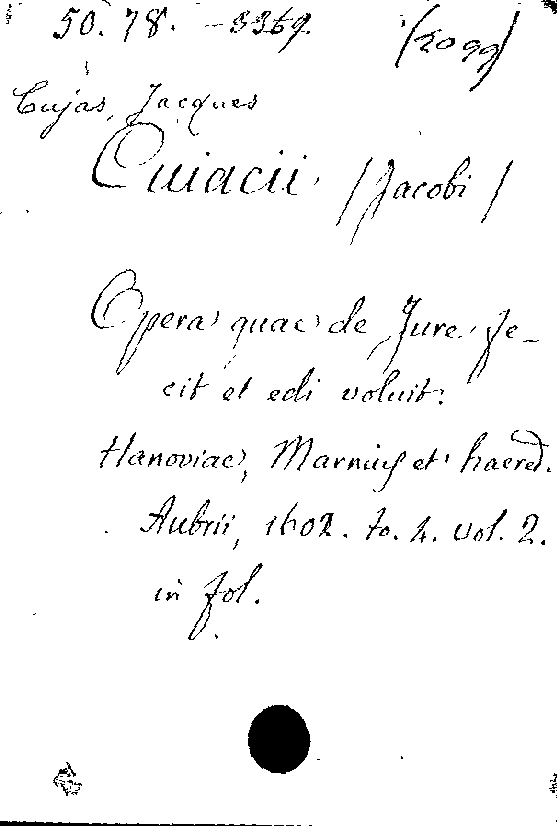 50. 78. - 3369
(2099)
Cujas, Jacques
Cuiacii /Jacobi/
Opera quae de Jure fe-
cit et edi voluit.
Hanoviae, Marnius et haered.
Aubrii, 1602. to. 4. vol. 2.
in fol.